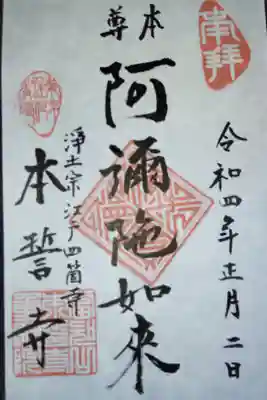 奉拝
令和四年正月二日
本尊
阿彌陀如來
浄土宗江戸四箇寺
本誓寺